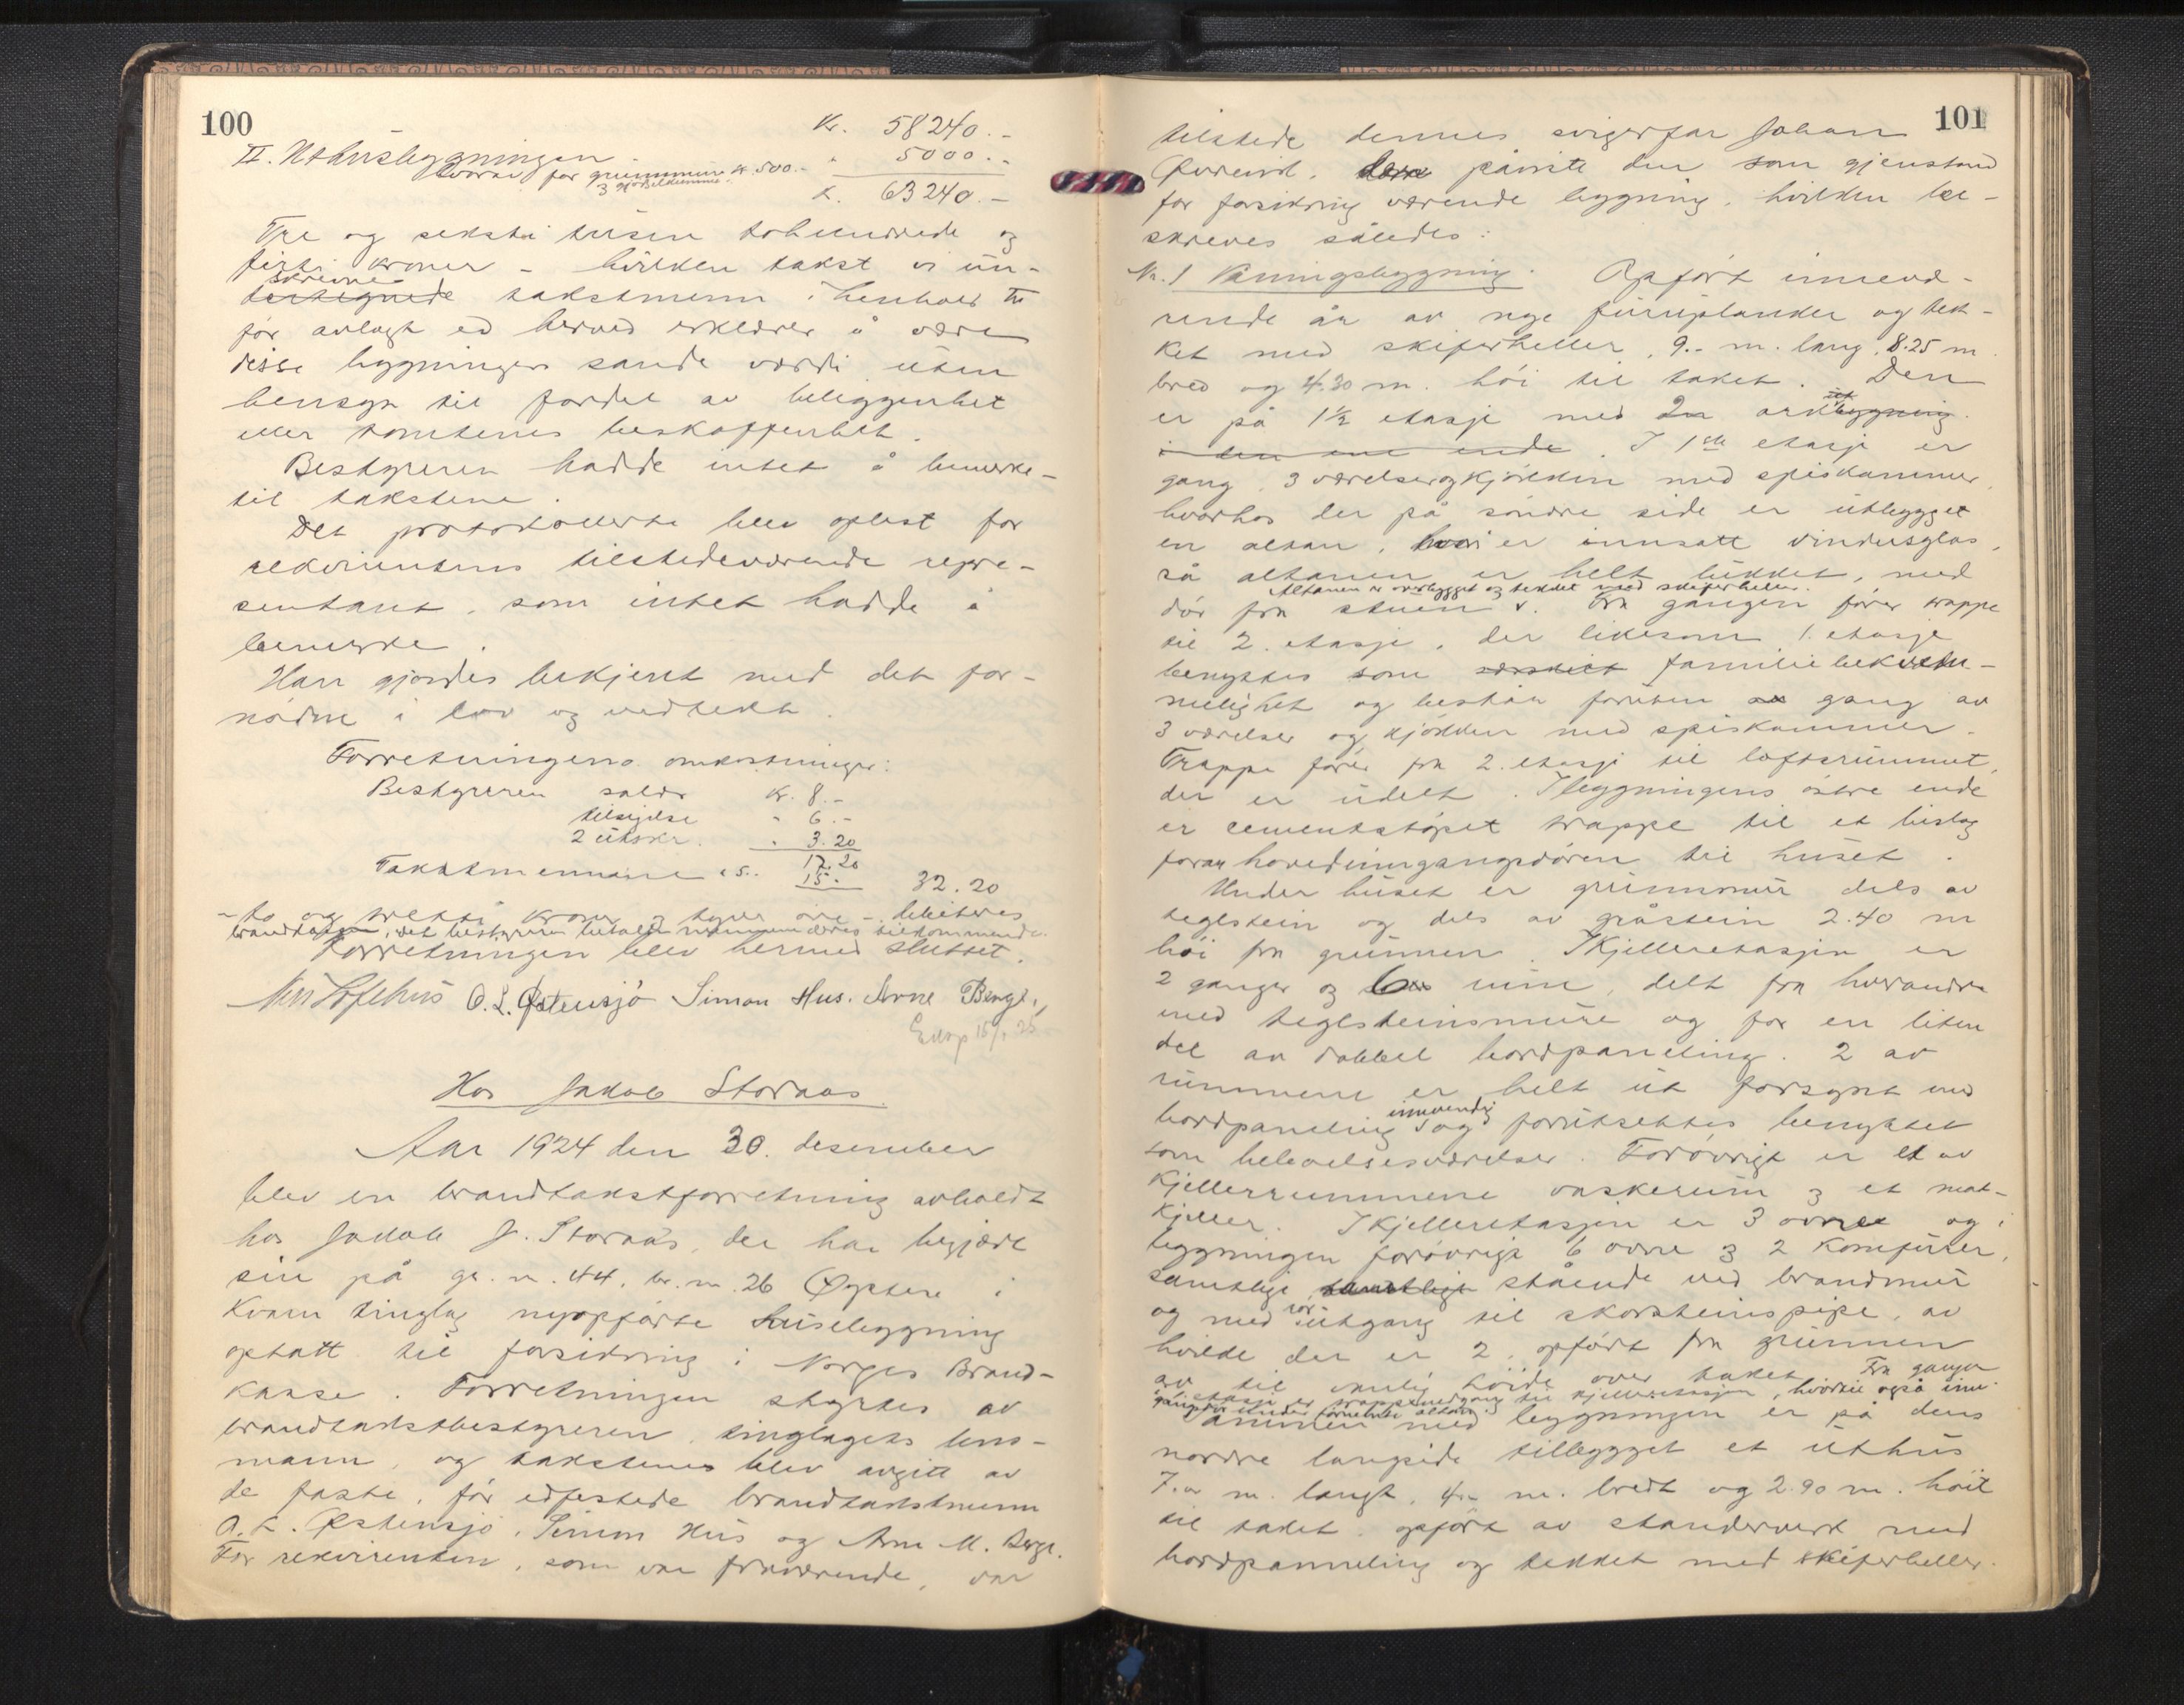 100
Kr. 58240.-
II. Uthusbygningen " 5000.-
Hvorav for grunnmur kr. 500.-
K. 63240.-
Tre og seksti tusen tohundrede og
firti kroner - hvilken takst vi un-
skrevne
dertegnede takstmenn i henhold til
før avlagt ed herved erklærer å være
disse bygningers sande værdi uten
hensyn til fordel av beliggenhet
eller tomtenes beskaffenhet.
Bestyreren hadde intet å bemerke
til takstene.
Det protokollerte blev oplest for
rekvirentens tilstedeværende repre-
sentant, som intet hadde å
bemerke.
Han gjordes bekjent med det for-
nødne i lov og vedtekt.
Forretningens omkostninger:
Bestyreren salær Kr. 8.-
tilsigelse " 6.-
2 utskr. " 3.20
17.20
Takstmennene á 5.- 15.- 32.20
- to og tretti kroner og tyve øre - debiteres
brandkassen, det bestyreren betaler mennene deres tilkommende.
Forretningen blev hermed sluttet.
O. L. Østensjö Simon Hus. Arne Berge,
Hos Jakob Storaas
Aar 1924 den 30. desember
blev en brandtakstforretning avholdt
hos Jakob J. Storaas, der har begjært
sin på gr. n. 44, br. n. 26 Øystese i
Kvam tinglag nyopførte husebygning
optatt til forsikring i Norges Brand-
kasse. Forretningen styrtes av
brandtakstbestyreren, tinglagets lens-
mann, og takstene blev avgitt av
de faste, før edfestede brandtakstmenn
O. L. Østensjö, Simon Hus og Arne M. Berge.
For rekvirenten, som var fraværende, var
101
tilstede dennes svigerfar Johan
påviste den som gjenstand
for forsikring værende bygning, hvilken be-
skreves således:
Nr. 1 Våningsbygning. Opført inneva-
rende år av nye furuplanker og tek-
ket med skiferheller, 9.- m. lang, 8.25 m.
bred og 4.30 m. høi til taket. Den
er på 1½ etasje med arkbygning
i den ene ende. I 1ste etasje er
gang, 3 værelser og kjøkken med spiskammer,
hvorhos der på søndre side er utbygget
en altan, hvori er innsatt vindusglas,
så altanen er helt lukket, med
Altanen er overbygget og tekket med skiferheller.
dør fra stuen v. Fra gangen fører trappe
til 2. etasje, der likesom 1. etasje
benyttes som særskilt familiebekvem-
melighet og består foruten av gang av
3 værelser og kjøkken med spiskammer.
Trappe fører fra 2. etasje til loftsrummet,
der er udelt. I bygningens østre ende
er cementstøpet trappe til et bislag
foran hovedinngangsdøren til huset.
Under huset er grunnmur dels av
teglstein og dels av gråstein 2.40 m
høi fra grunnen. I kjelleretasjen er
2 ganger og 6 rum, delt fra hverandre
med teglsteinsmure og for en liten
del av dobbel bordpaneling. 2 av
rummene er helt ut forsynt med
innvendig
bordpaneling og forutsettes benyttet
som beboelsesværelser. Forøvrigt er et av
kjellerrummene vaskerum og et mat-
kjeller. I kjelleretasjen er 3 ovner og i
bygningen forøvrigt 6 ovne og 2 komfurer,
samtlige samtlige stående ved brandmur
og med rør utgang til skorsteinspipe, av
hvilke der er 2, opført fra grunnen
av til vanlig høide over taket. Fra gangen
i 1. etasje er trappenedgang til kjelleretasjen, hvortil også inn-
gangsdør under førnevnte altan.
Sammen med bygningen er på dens
nordre langside tilbygget et uthus
7.- m. langt, 4.- m. bredt og 2.90 m. høit
til taket, opført av standerverk med
bordpanneling og tekket med skiferheller.